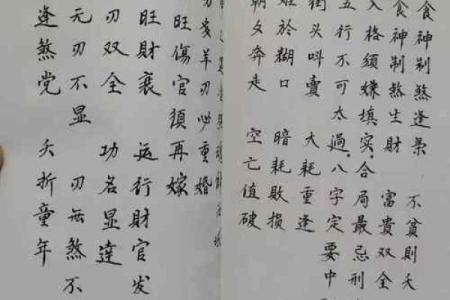 食神制煞逢枭 不貧則夭
食神制煞生財 富貴双全
入格须嫌填实，合局最忌刑
五行不可太過，八字定要中
头叫賣 大耗重逢
於糊口 暗耗敗損
夕奔走 空亡值破
多羊刃必重婚
旺傷官須再嫁
旺財衰 运行財官发
刃双全 功名显達
元刃不显 刃無煞不
逢煞党 夭折童年